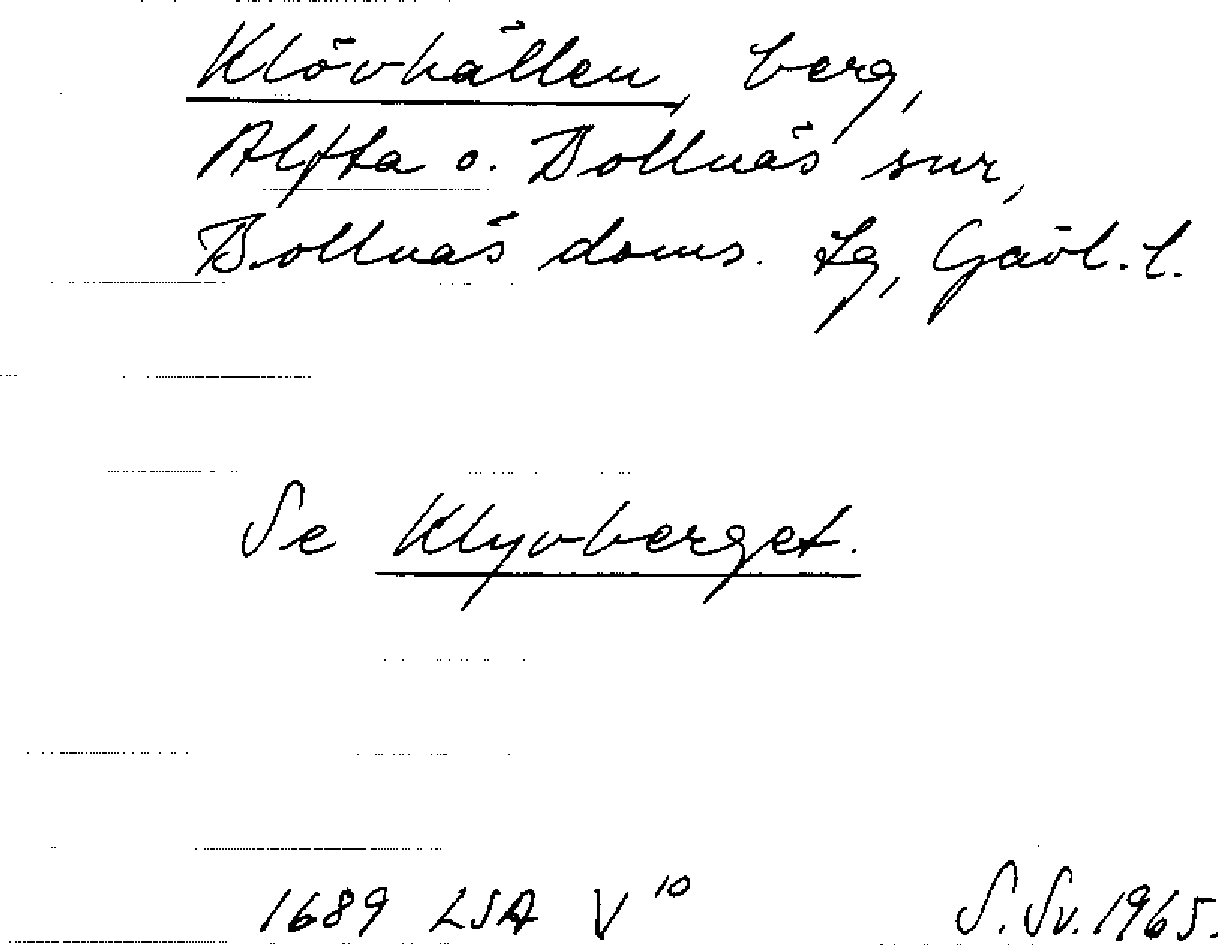 Klövhällen, berg,
Alfta o. Bollnäs snr,
Bollnäs doms. Lg, Gävl. l.
Se Klyvberget.
1689 LSA V¹⁰ S. Sv. 1965.